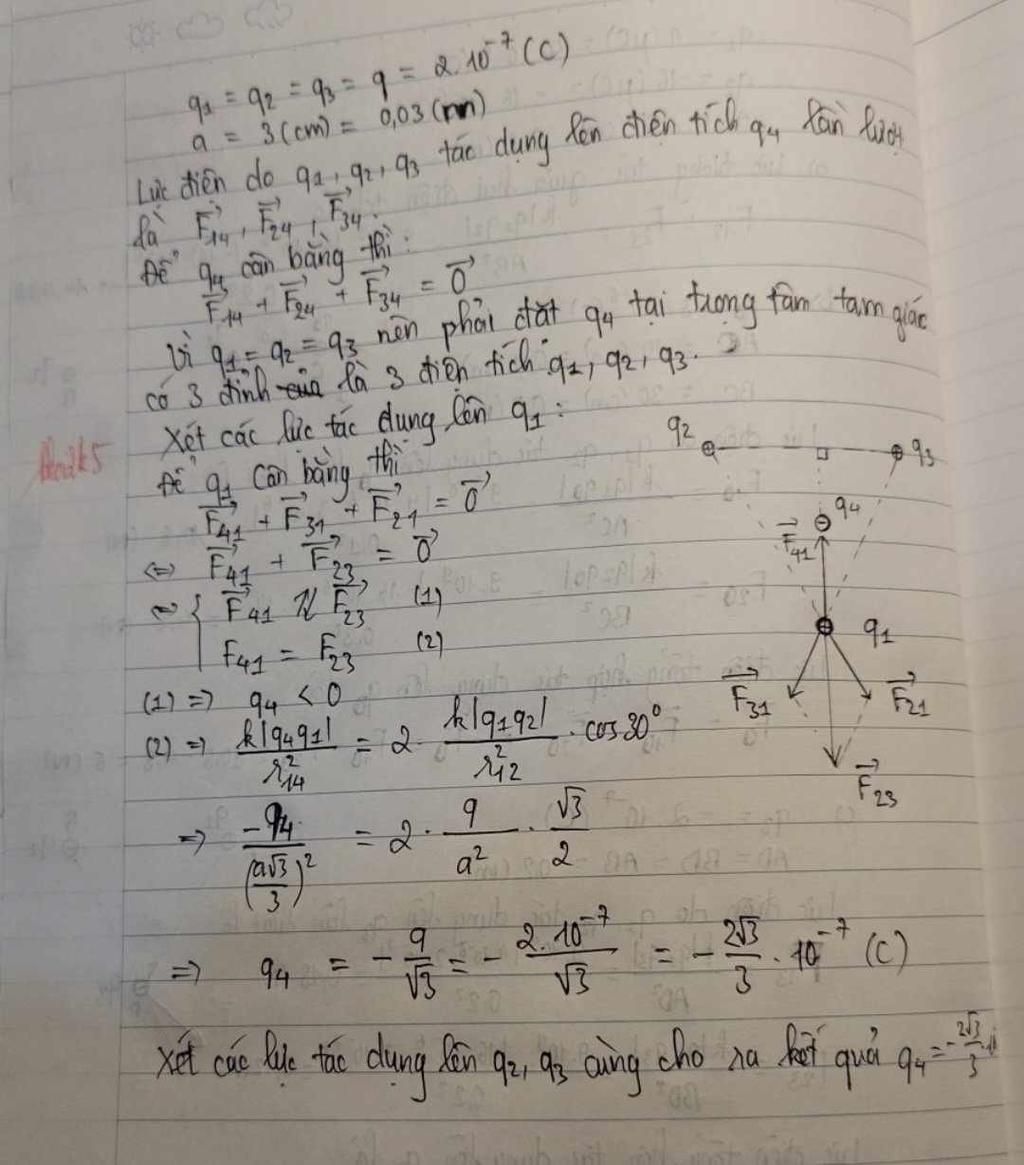 q₁ = q₂ = q₃ = q = 2.10⁻⁷ (C)
a = 3 (cm) = 0,03 (m)
Lực điện do q₁, q₂, q₃ tác dụng lên điện tích q₄ lần lượt
là F⃗₁₄, F⃗₂₄, F⃗₃₄.
Để q₄ cân bằng thì:
F⃗₁₄ + F⃗₂₄ + F⃗₃₄ = 0⃗
Vì q₁ = q₂ = q₃ nên phải đặt q₄ tại trọng tâm tam giác
có 3 đỉnh là 3 điện tích q₁, q₂, q₃.
Xét các lực tác dụng lên q₁:
Để q₁ cân bằng thì
F⃗₄₁ + F⃗₃₁ + F⃗₂₁ = 0⃗
<=> F⃗₄₁ + F⃗₂₃ = 0⃗
<=> { F⃗₄₁ ↑↓ F⃗₂₃ (1)
F₄₁ = F₂₃ (2)
(1) => q₄ < 0
(2) => k|q₄q₁| / r₁₄² = 2 . k|q₁q₂| / r₁₂² . cos30°
=> -q₄ / (a√3/3)² = 2 . q/a² . √3/2
=> q₄ = - q/√3 = - 2.10⁻⁷/√3 = - 2√3/3 . 10⁻⁷ (C)
Xét các lực tác dụng lên q₂, q₃ cũng cho ra kết quả q₄ = -2√3/3
q₂
q₃
q₄
F⃗₄₁
q₁
F⃗₃₁
F⃗₂₁
F⃗₂₃